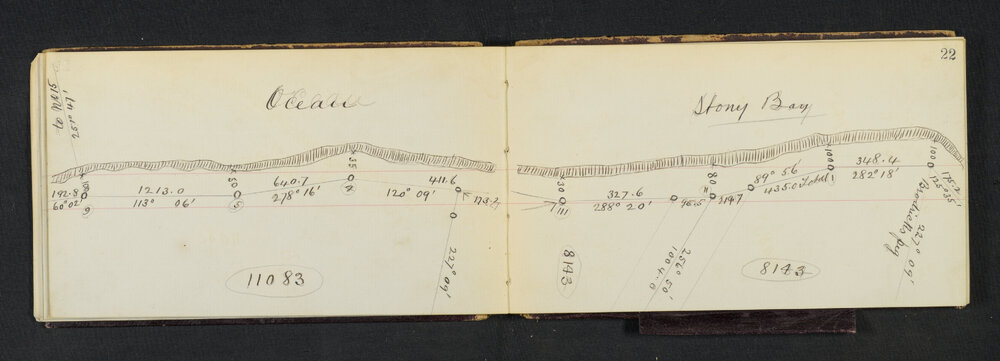 22
Ocean
Stony Bay
to No 15
251° 47'
192.8
60° 02'
100
6
1213.0
113° 06'
50
5
640.7
278° 16'
35
4
120° 09'
411.6
173.2
227° 09'
11083
30
111
327.6
288° 20'
96.5
80
11
219.7
89° 56'
435.0 Total
100
348.4
282° 18'
100
175.2
135° 35'
Brodrick's peg
227° 09'
256° 50'
1004.0
8143
8143